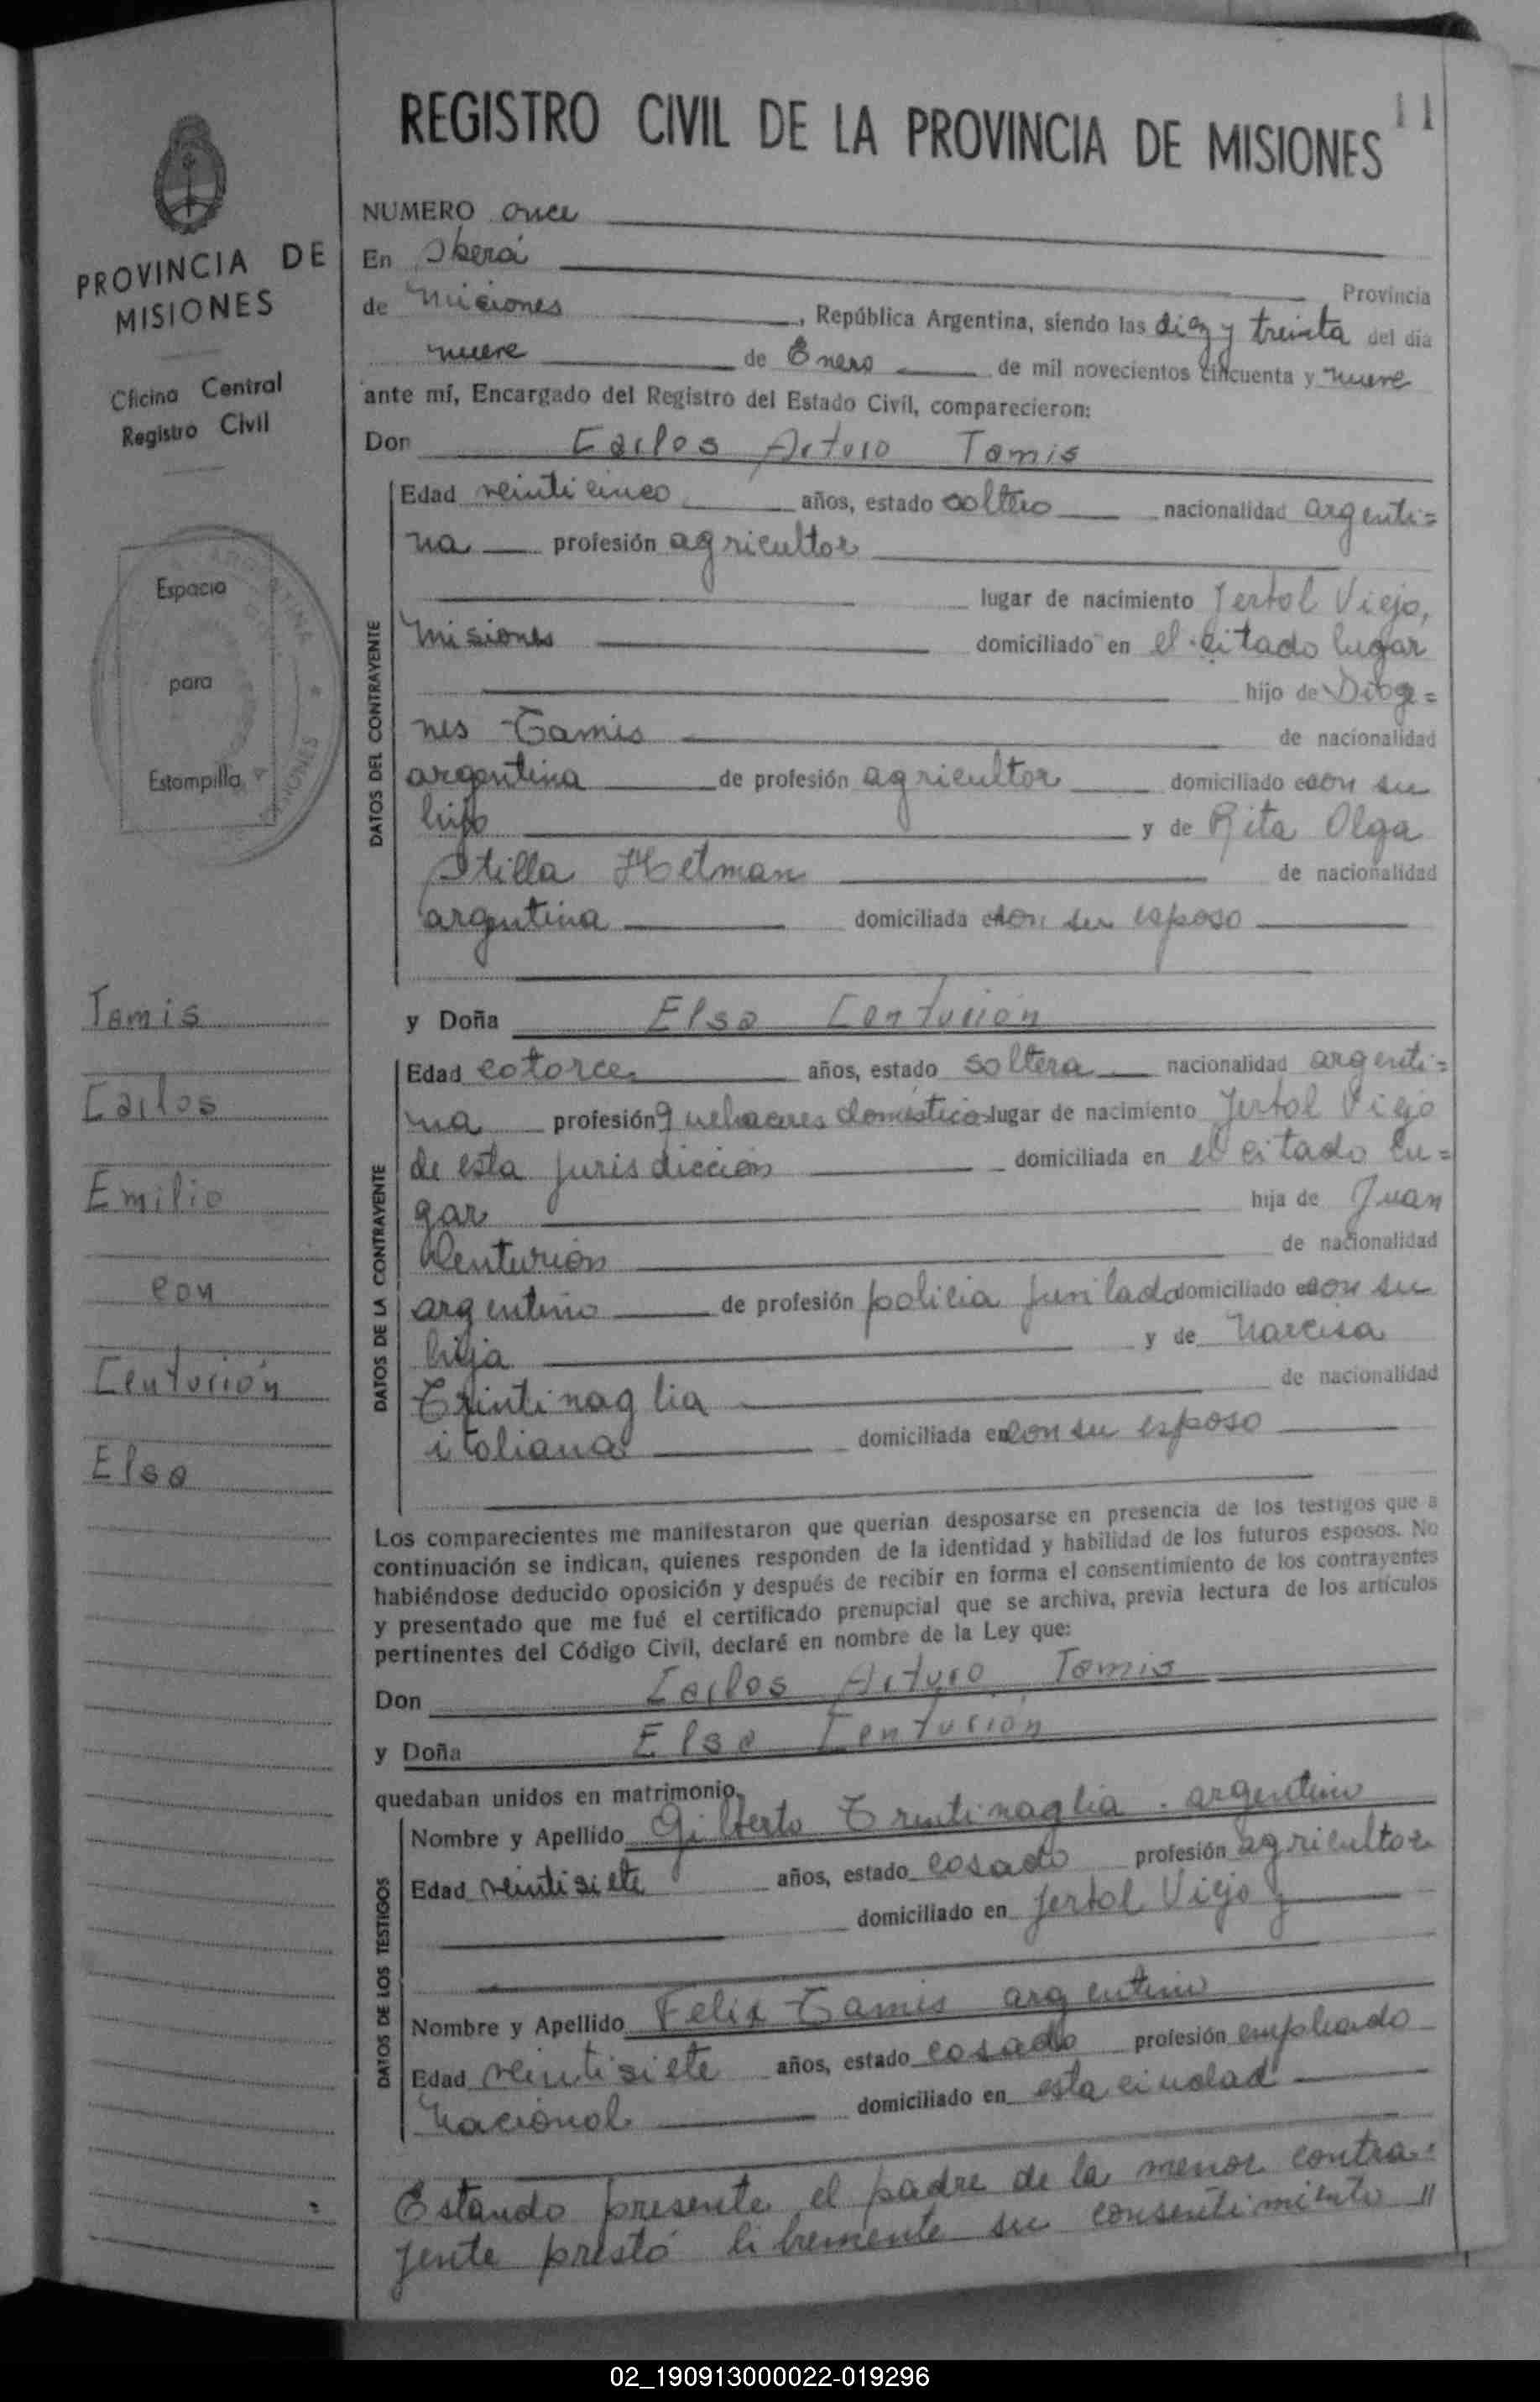 11
REGISTRO CIVIL DE LA PROVINCIA DE MISIONES
PROVINCIA DE
MISIONES
Oficina Central
Registro Civil
Espacio
para
Estampilla
Tamis
Carlos
Emilio
con
Centurión
Elsa
NUMERO once
En Oberá
Provincia
de Misiones, República Argentina, siendo las diez y treinta del día
nueve de Enero de mil novecientos cincuenta y nueve
ante mí, Encargado del Registro del Estado Civil, comparecieron:
Don Carlos Arturo Tamis
DATOS DEL CONTRAYENTE
Edad veinticinco años, estado soltero nacionalidad argenti=
na profesión agricultor
lugar de nacimiento Yerbal Viejo,
Misiones domiciliado en el citado lugar
hijo de Dioge=
nes Tamis de nacionalidad
argentina de profesión agricultor domiciliado con su
hijo y de Rita Olga
Hetman de nacionalidad
argentina domiciliada con su esposo
y Doña Elsa Centurión
DATOS DE LA CONTRAYENTE
Edad catorce años, estado soltera nacionalidad argenti=
na profesión quehaceres domésticos lugar de nacimiento Yerbal Viejo
de esta jurisdicción domiciliada en el citado lu=
gar hija de Juan
Centurión de nacionalidad
argentino de profesión policia jubilado domiciliado con su
hija y de Narcisa
Trintinaglia de nacionalidad
italiana domiciliada en con su esposo
Los comparecientes me manifestaron que querían desposarse en presencia de los testigos que a
continuación se indican, quienes responden de la identidad y habilidad de los futuros esposos. No
habiéndose deducido oposición y después de recibir en forma el consentimiento de los contrayentes
y presentado que me fué el certificado prenupcial que se archiva, previa lectura de los artículos
pertinentes del Código Civil, declaré en nombre de la Ley que:
Don Carlos Arturo Tamis
y Doña Elsa Centurión
quedaban unidos en matrimonio.
DATOS DE LOS TESTIGOS
Nombre y Apellido Gilberto Trentinaglia - argentino
Edad veintisiete años, estado casado profesión agricultor
domiciliado en Yerbal Viejo y
Nombre y Apellido Felix Tamis argentino
Edad veintisiete años, estado casado profesión empleado
Nacional domiciliado en esta ciudad
Estando presente el padre de la menor contra=
yente prestó libremente su consentimiento //
02_190913000022-019296